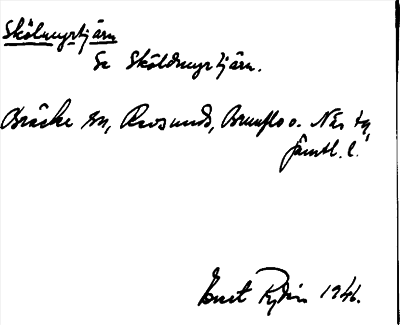 Skölmyrtjärn
Se Sköldmyrtjärn.
Bräcke sn, Revsunds, Brunflo o. Näs tg,
Jämtl. l.
Ernst Rydin 1946.